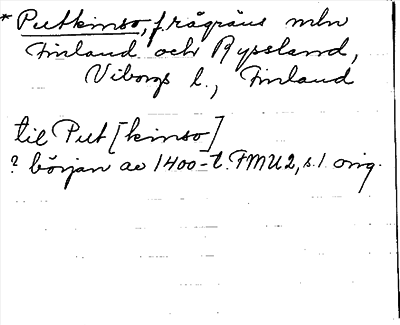 * Putkinso, f. rågräns mln
Finland och Ryssland,
Viborgs l., Finland
til Put[kinso]
? början av 1400-t. FMU 2, s. 1. orig.